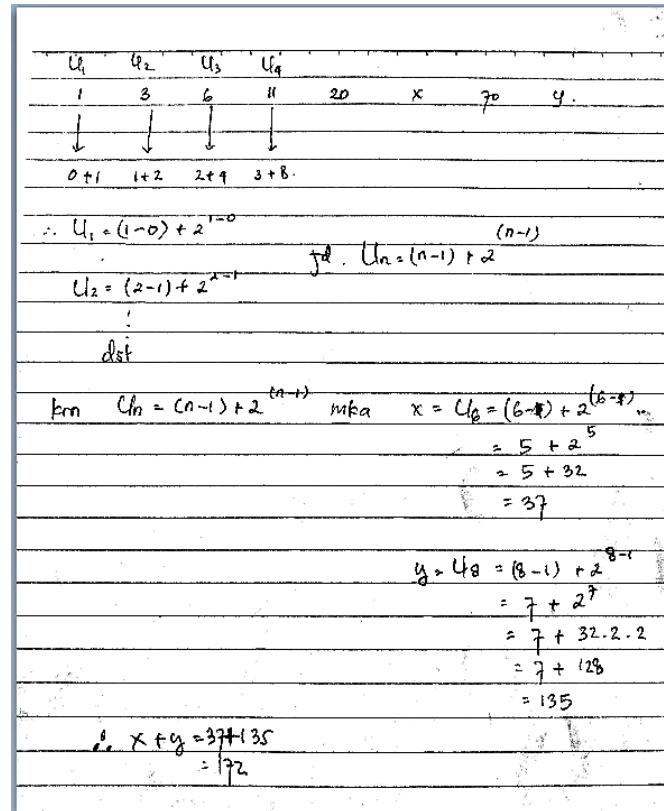 U₁ U₂ U₃ U₄
1 3 6 11 20 x 70 y.
0+1 1+2 2+4 3+8.
∴ U₁ = (1-0) + 2^{1-0}
jd. Uₙ = (n-1) + 2^{(n-1)}
U₂ = (2-1) + 2^{2-1}
dst
krn Uₙ = (n-1) + 2^{(n-1)} mka x = U₆ = (6-1) + 2^{(6-1)}
= 5 + 2^5
= 5 + 32
= 37
y = U₈ = (8-1) + 2^{8-1}
= 7 + 2^7
= 7 + 32.2.2
= 7 + 128
= 135
∴ x + y = 37+135
= 172